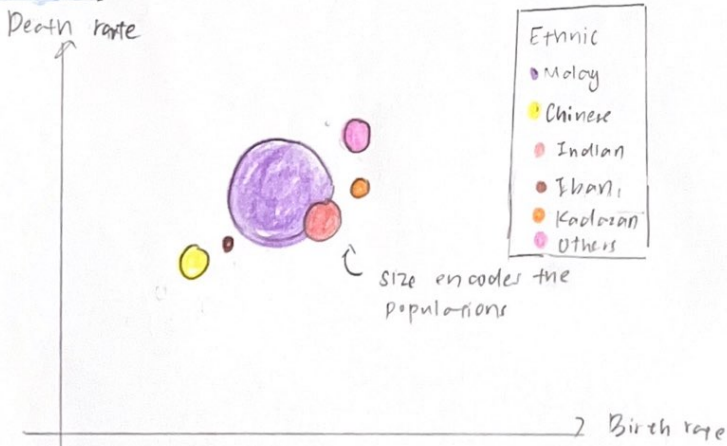 Death rate
Ethnic
Malay
Chinese
Indian
Iban
Kadazan
Others
size encodes the
populations
Birth rate